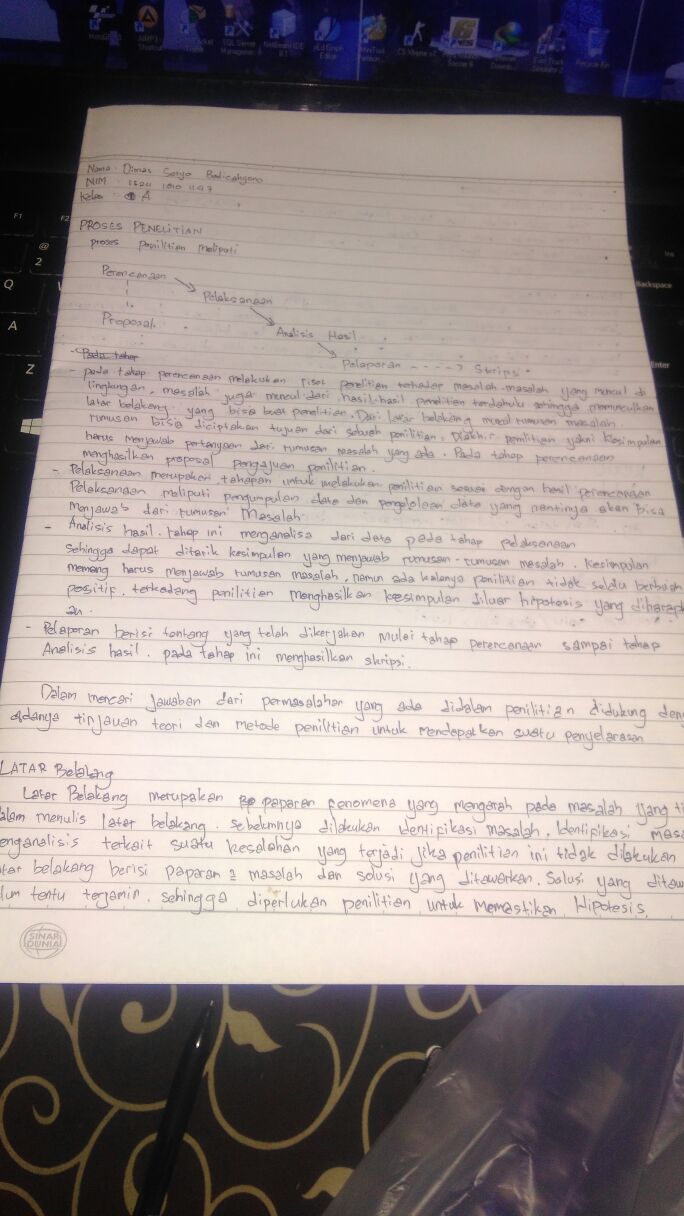 Recycle Bin
F1
F2
@
2
Q
A
Z
Ins
Backspace
Enter
Nama : Dimas Setyo
NIM
Kelas A
PROSES PENELITIAN
proses penilitian meliputi
Perencanaan
Pelaksanaan
Proposal.
Analisis Hasil
Pelaporan ----> Skripsi
- Pada tahap
- pada tahap perencanaan melakukan riset penelitian terhadap masalah-masalah yang muncul di
lingkungan, masalah juga muncul dari hasil-hasil penelitian terdahulu sehingga memunculkan
latar belakang yang bisa buat penelitian. Dari latar belakang muncul rumusan masalah.
rumusan bisa diciptakan tujuan dari sebuah penilitian. penilitian yakni kesimpulan
harus menjawab pertanyaan dari rumusan masalah yang ada. Pada tahap perencanaan
menghasilkan proposal pengajuan penilitian.
- Pelaksanaan merupakan tahapan untuk melakukan penilitian sesuai dengan hasil perencanaan
Pelaksanaan meliputi pengumpulan data dan pengelolaan data yang nantinya akan bisa
Menjawab dari rumusan Masalah.
- Analisis hasil. tahap ini menganalisa dari data pada tahap pelaksanaan
Sehingga dapat ditarik kesimpulan yang menjawab rumusan-rumusan masalah. kesimpulan
memang harus menjawab rumusan masalah, namun ada kalanya penilitian tidak selalu berbuah
positif, terkadang penilitian menghasilkan kesimpulan diluar hipotesis yang diharap
an.
- Pelaporan berisi tentang yang telah dikerjakan mulai tahap perencanaan sampai tahap
Analisis hasil. pada tahap ini menghasilkan skripsi.
Dalam mencari jawaban dari permasalahan yang ada didalam penilitian didukung deng
adanya tinjauan teori dan metode penilitian untuk mendapatkan suatu penyelarasan
LATAR Belakang
Latar Belakang merupakan paparan fenomena yang mengarah pada masalah yang
dalam menulis latar belakang. sebelumnya dilakukan identifikasi masalah, Identifikasi masa
enganalisis terkait suatu kesalahan yang terjadi jika penilitian ini tidak dilakukan
atar belakang berisi paparan masalah dan solusi yang ditawarkan. Solusi yang ditaw
lum tentu terjamin. sehingga diperlukan penilitian untuk Memastikan Hipotesis.
SINAR
DUNIA